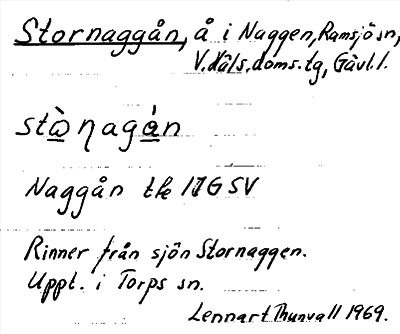 Stornaggån, å i Naggen, Ramsjö sn,
V. Häls. doms. tg, Gävl. l.
stà̱ŋagà̱n
Naggån tk 17G SV
Rinner från sjön Stornaggen.
Uppt. i Torps sn.
Lennart Thunvall 1969.